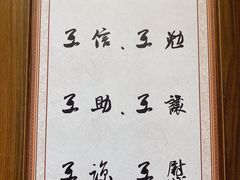 互信、互勉
互助、互讓
互諒、互慰